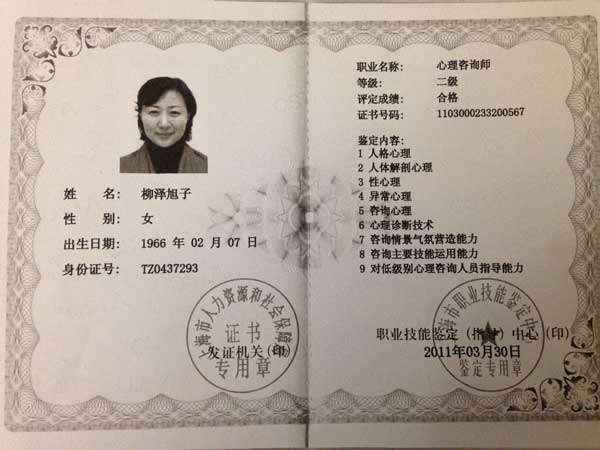 姓 名: 柳泽旭子
性 别: 女
出生日期: 1966 年 02 月 07 日
身份证号: TZ0437293
上海市人力资源和社会保障局
证书
专用章
发证机关(印)
职业名称: 心理咨询师
等级: 二级
评定成绩: 合格
证书号码: 1103000233200567
鉴定内容:
1 人格心理
2 人体解剖心理
3 性心理
4 异常心理
5 咨询心理
6 心理诊断技术
7 咨询情景气氛营造能力
8 咨询主要技能运用能力
9 对低级别心理咨询人员指导能力
上海市职业技能鉴定中心
职业技能鉴定(指导)中心(印)
2011年03月30日
鉴定专用章